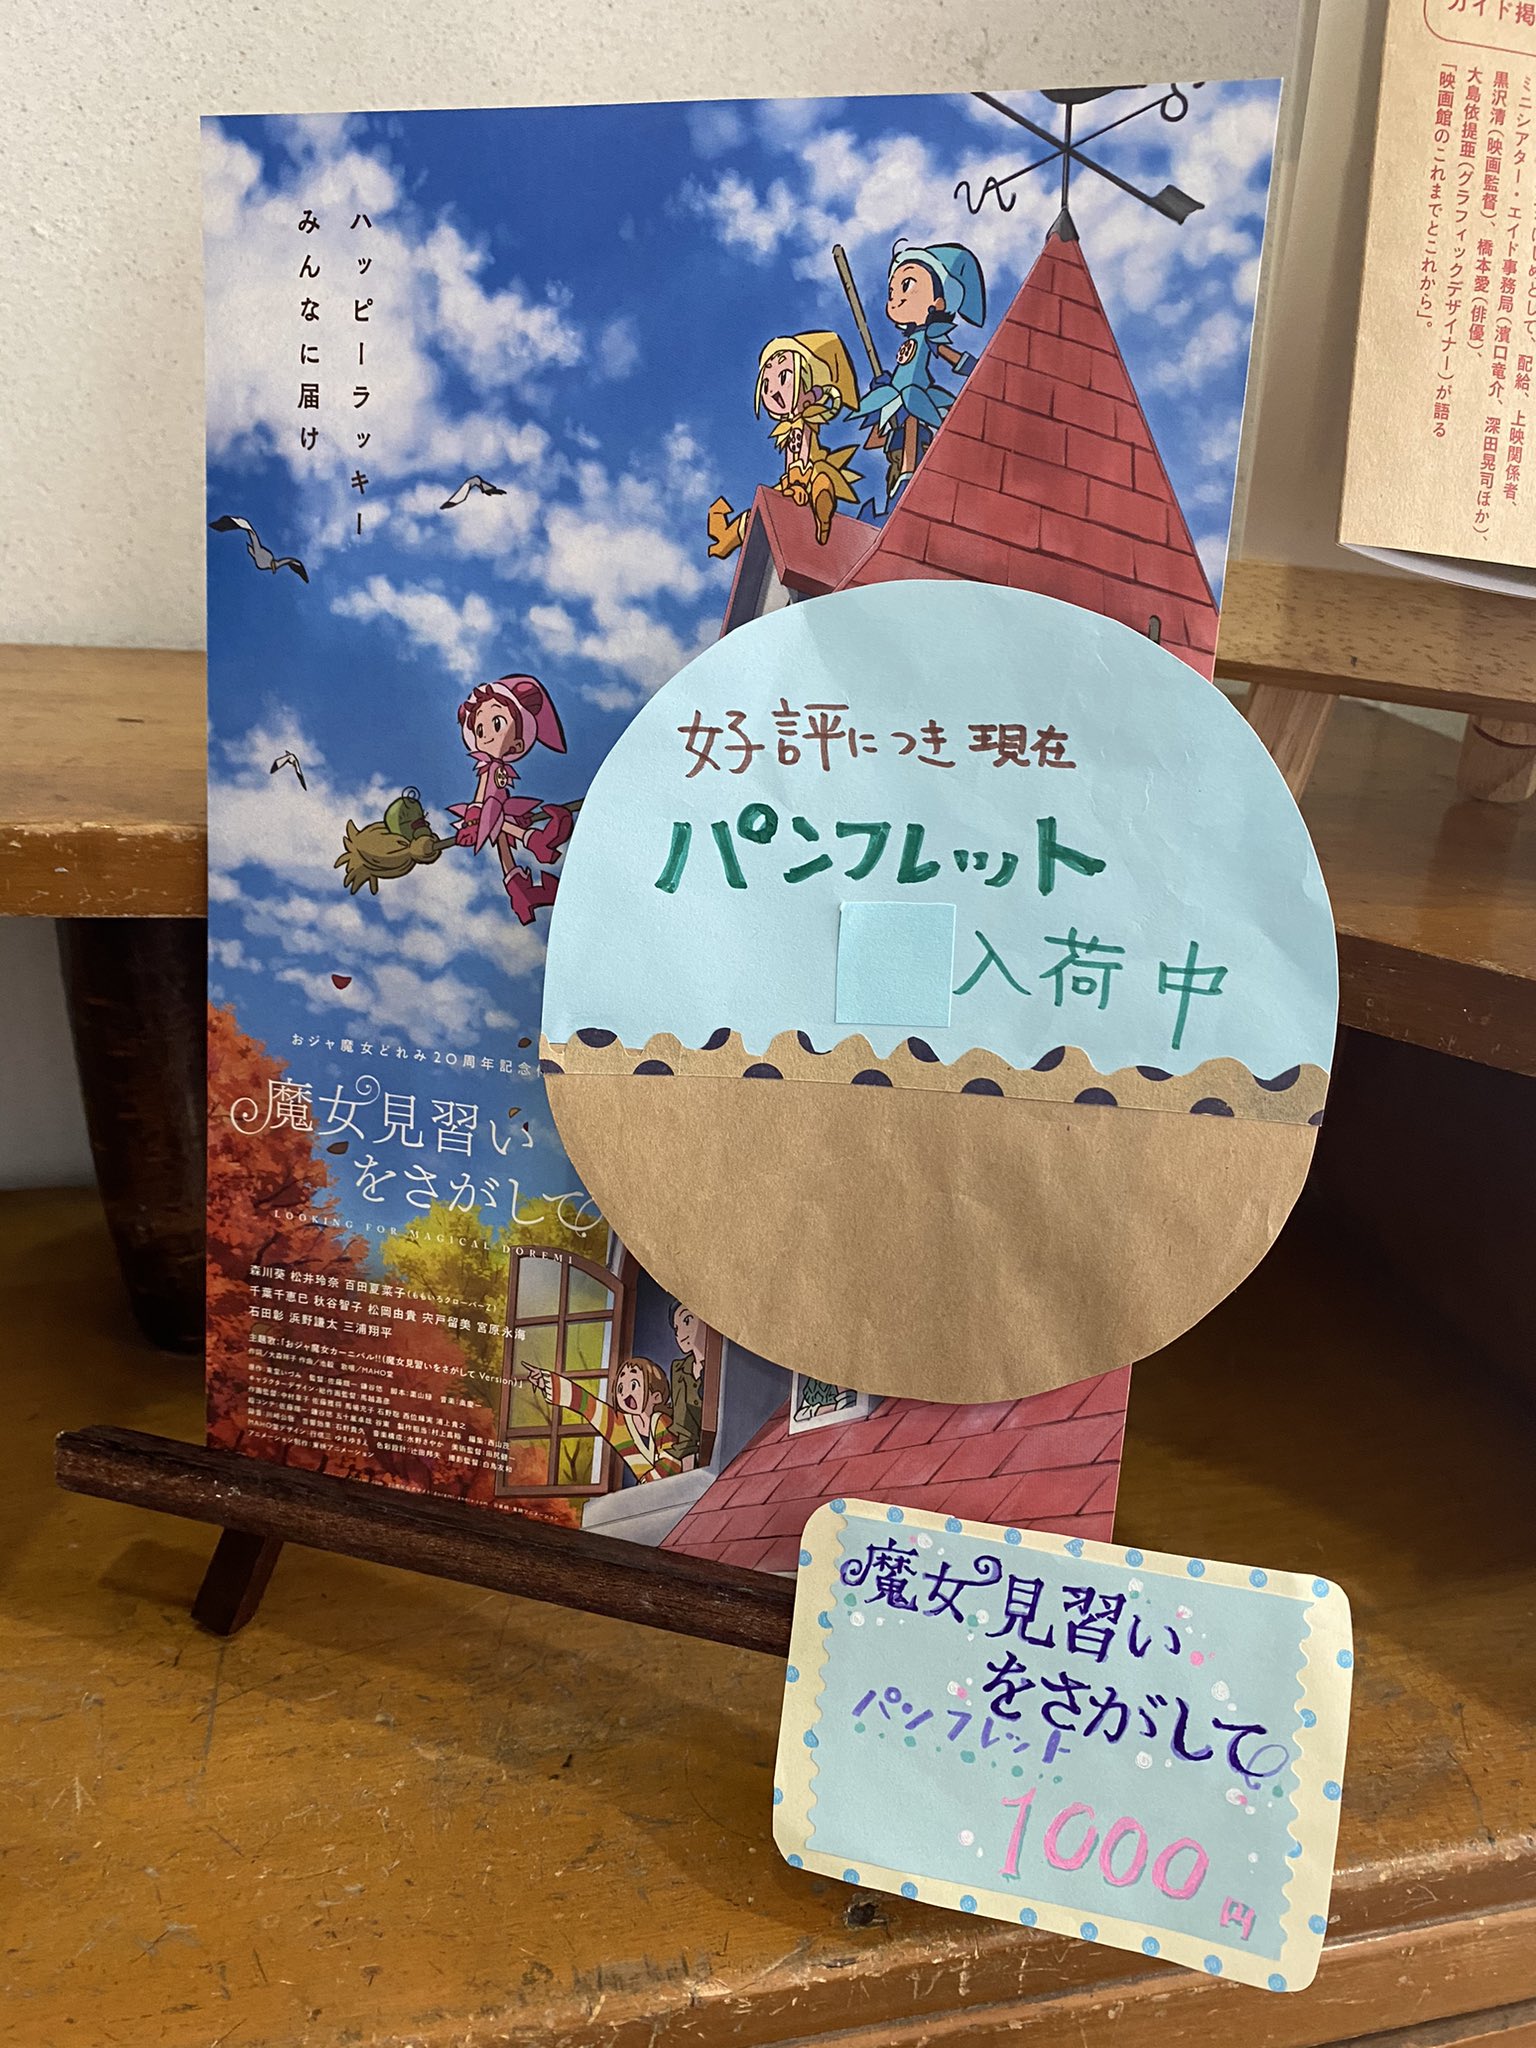 ハッピーラッキー
みんなに届け
好評につき現在
パンフレット
入荷中
おジャ魔女どれみ20周年記念
魔女見習い
をさがして
LOOKING FOR MAGICAL DOREMI
森川葵 松井玲奈 百田夏菜子(ももいろクローバーZ)
千葉千恵巳 秋谷智子 松岡由貴 宍戸留美 宮原永海
石田彰 浜野謙太 三浦翔平
主題歌:「おジャ魔女カーニバル!!(魔女見習いをさがして Version)」
アニメーション制作:東映アニメーション
魔女見習い
をさがして
パンフレット
1000円
ガイド掲
配給、上映関係者、
ミニシアター・エイド事務局(濱口竜介、深田晃司ほか)、
黒沢清(映画監督)、橋本愛(俳優)、
大島依提亜(グラフィックデザイナー)が語る
「映画館のこれまでとこれから」。